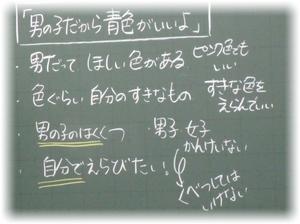 「男の子だから青色がいいよ」
・男だって ほしい色がある
ピンク色でもいい
・色ぐらい 自分のすきなもの
すきな色を
えらんでいい
・男の子のはくくつ
・男子 女子
かんけいない
・自分でえらびたい。
くべつしては
いけない